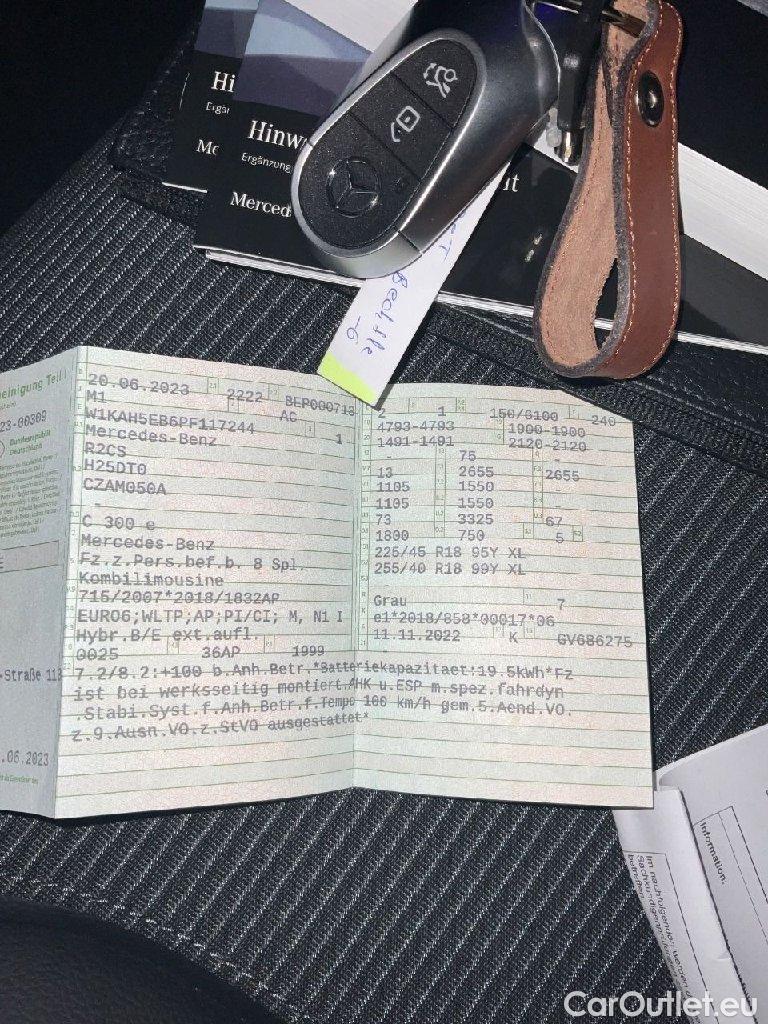 Hi
Ergä
Hinw
Ergänzung
Merced
Bechstr
einigung Teil I
23-00309
Bundesrepublik
Deutschland
20.06.2023 2222 BEP000713
M1 AC
W1KAH5EB6PF117244 1
Mercedes-Benz
R2CS
H25DT0
CZAM050A
-
C 300 e
Mercedes-Benz
Fz.z.Pers.bef.b. 8 Spl.
Kombilimousine
715/2007*2018/1832AP
EURO6;WLTP;AP;PI/CI; M, N1 I
Hybr.B/E ext.aufl.
0025 36AP 1999
2 1 150/6100 240
4793-4793 1900-1900
1491-1491 2120-2120
- 75
13 2655 2655
1105 1550 -
1105 1550 -
73 3325 67
1800 750 5
225/45 R18 95Y XL
255/40 R18 99Y XL
-
Grau 7
e1*2018/858*00017*06
11.11.2022 K GV686275
-
7.2/8.2:+100 b.Anh.Betr.*Batteriekapazitaet:19.5kWh*Fz
ist bei werksseitig montiert.AHK u.ESP m.spez.fahrdyn
.Stabi.Syst.f.Anh.Betr.f.Tempo 100 km/h gem.5.Aend.VO.
z.9.Ausn.VO.z.StVO ausgestattet*
-Straße 11
.06.2023
Information.
Im nachfolgenden
CarOutlet.eu